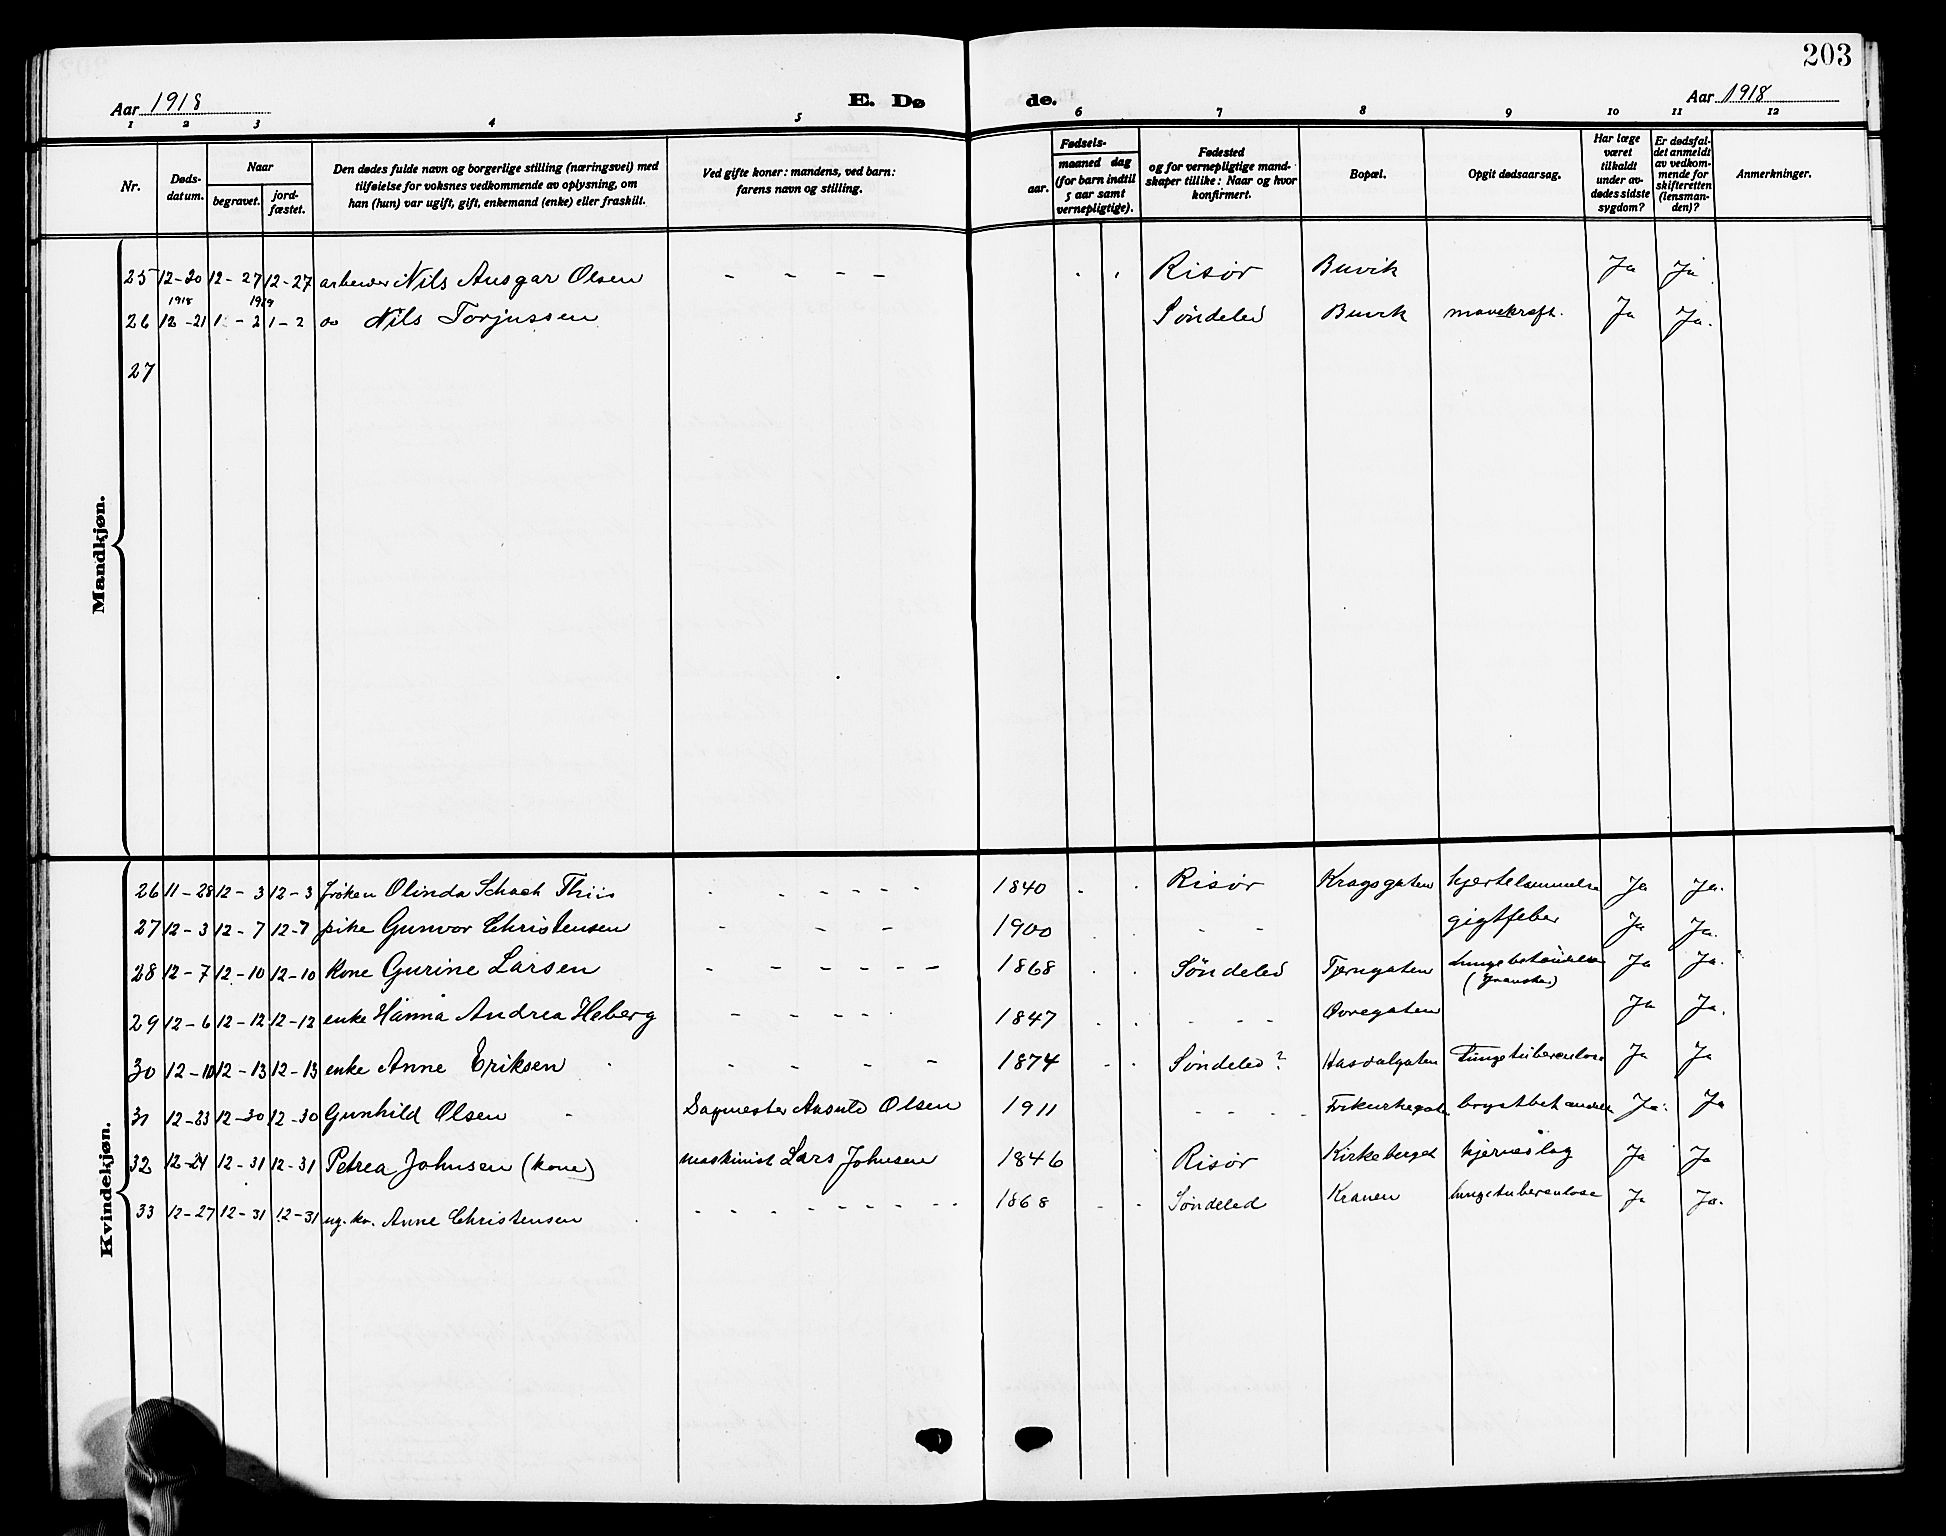 203
Aar 1918 E. Døde. Aar 1918
1 2 3 4 5 6 7 8 9 10 11 12
Nr.
Døds-
datum.
Naar
begravet.
jord-
fæstet.
Den dødes fulde navn og borgerlige stilling (næringsvei) med
tilføielse for voksnes vedkommende av oplysning, om
han (hun) var ugift, gift, enkemand (enke) eller fraskilt.
Ved gifte koner: mandens, ved barn:
farens navn og stilling.
Fødsels-
aar.
maaned dag
(for barn indtil
5 aar samt
vernepligtige).
Fødested
og for vernepligtige mand-
skaper tillike: Naar og hvor
konfirmert.
Bopæl.
Opgit dødsaarsag.
Har læge
været
tilkaldt
under av-
dødes sidste
sygdom?
Er dødsfal-
det anmeldt
av vedkom-
mende for
skifteretten
(lensman-
den)?
Anmerkninger.
Mandkjøn.
25 12-20 12-27 12-27 arbeider Nils Ansgar Olsen - - - - Risør Buvik Ja Ja
1918 1919
26 12-21 1-2 1-2 do Nils Torjussen Søndeled Buvik mavekræft. Ja Ja.
27
Kvindekjøn.
26 11-28 12-3 12-3 frøken Olinda Schach Thiis - - - - - 1840 - - Risør Kragsgaten hjertelammelse Ja Ja.
27 12-3 12-7 12-7 pike Gunvor Christensen - - - 1900 - - gigtfeber Ja Ja.
28 12-7 12-10 12-10 kone Gurine Larsen - - - - - - 1868 Søndeled Tjerngaten Lungebetændelse Ja Ja.
(spanske)
29 12-6 12-12 12-12 enke Hanna Andrea Heberg - - - - 1847 - - - Ovregaten Ja Ja.
30 12-10 12-13 12-13 enke Anne Eriksen - - - - 1874 - - Søndeled? Hasdalgaten Lungetuberculose Ja Ja
31 12-23 12-30 12-30 Gunhild Olsen - Sagmester Ansuld Olsen 1911 - - - - Frikirkegate brystbetændelse Ja. Ja
32 12-24 12-31 12-31 Petrea Johnsen (kone) maskinist Lars Johnsen 1846 Risør Kirkeberget hjerneslag Ja Ja
33 12-27 12-31 12-31 ug. kv. Anne Christensen - - - - - - - - - 1868 - - Søndeled Kranen lungetuberculose Ja Ja.